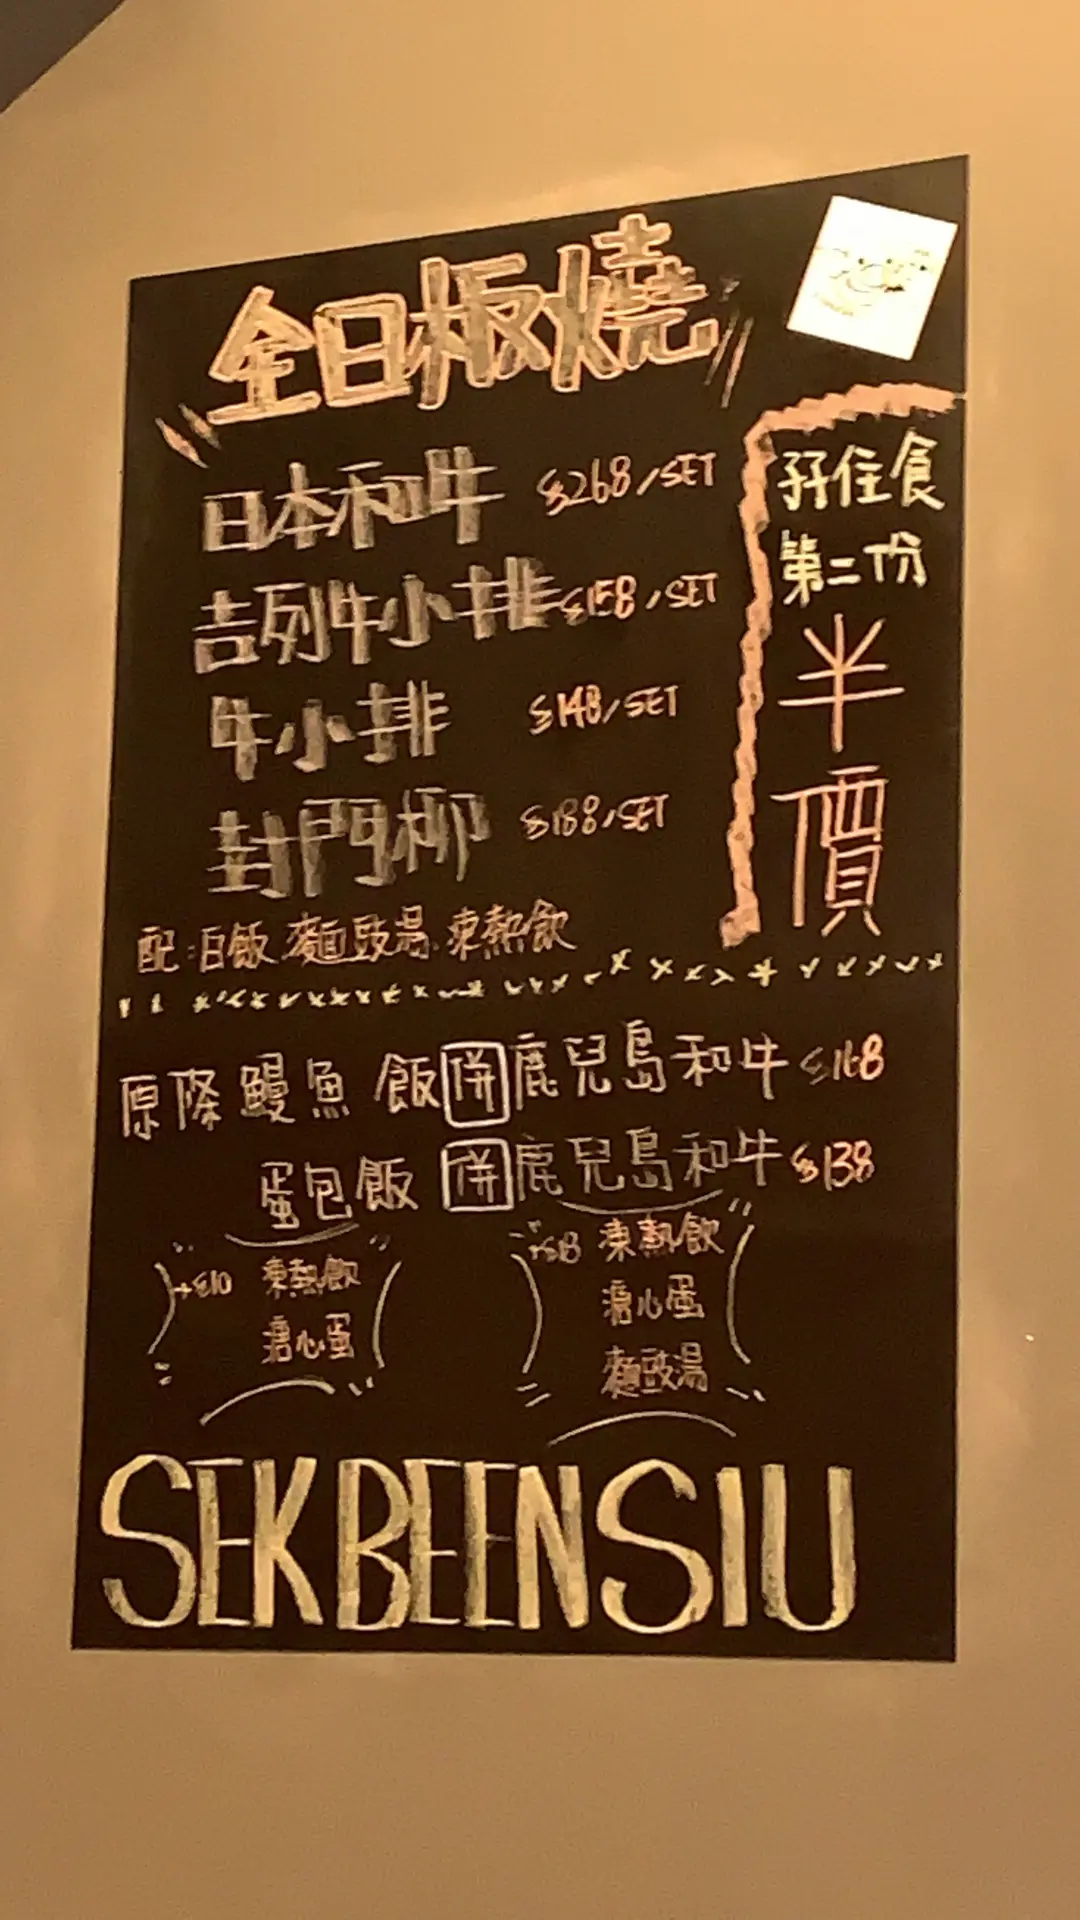 全日板燒
日本和牛 $268/SET
吉列牛小排 $158/SET
牛小排 $148/SET
封門柳 $188/SET
配:白飯.麵豉湯.凍熱飲
孖住食
第二份
半
價
原條鰻魚飯 併 鹿兒島和牛 $168
蛋包飯 併 鹿兒島和牛 $138
+$10 凍熱飲
溏心蛋
+$18 凍熱飲
溏心蛋
麵豉湯
SEKBEENSIU